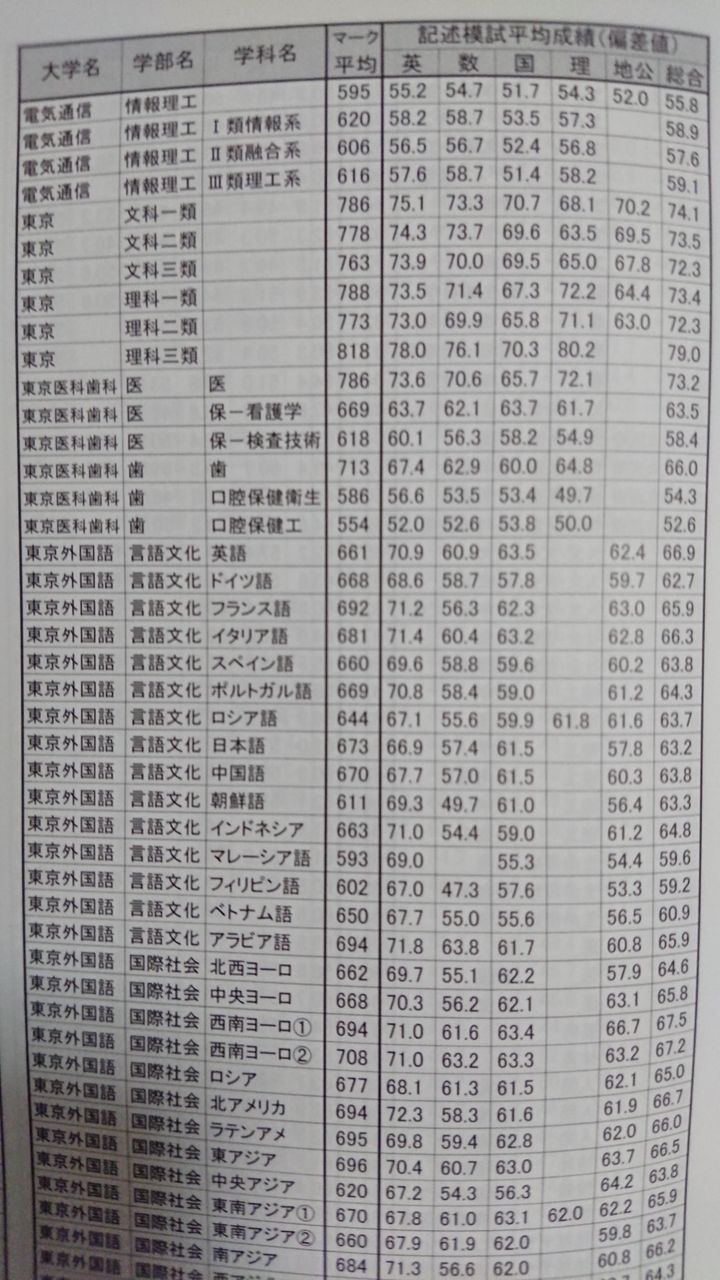 大学名 学部名 学科名 マーク平均 記述模試平均成績(偏差値)
英 数 国 理 地公 総合
電気通信 情報理工 595 55.2 54.7 51.7 54.3 52.0 55.8
電気通信 情報理工 Ⅰ類情報系 620 58.2 58.7 53.5 57.3 58.9
電気通信 情報理工 Ⅱ類融合系 606 56.5 56.7 52.4 56.8 57.6
電気通信 情報理工 Ⅲ類理工系 616 57.6 58.7 51.4 58.2 59.1
東京 文科一類 786 75.1 73.3 70.7 68.1 70.2 74.1
東京 文科二類 778 74.3 73.7 69.6 63.5 69.5 73.5
東京 文科三類 763 73.9 70.0 69.5 65.0 67.8 72.3
東京 理科一類 788 73.5 71.4 67.3 72.2 64.4 73.4
東京 理科二類 773 73.0 69.9 65.8 71.1 63.0 72.3
東京 理科三類 818 78.0 76.1 70.3 80.2 79.0
東京医科歯科 医 医 786 73.6 70.6 65.7 72.1 73.2
東京医科歯科 医 保－看護学 669 63.7 62.1 63.7 61.7 63.5
東京医科歯科 医 保－検査技術 618 60.1 56.3 58.2 54.9 58.4
東京医科歯科 歯 歯 713 67.4 62.9 60.0 64.8 66.0
東京医科歯科 歯 口腔保健衛生 586 56.6 53.5 53.4 49.7 54.3
東京医科歯科 歯 口腔保健工 554 52.0 52.6 53.8 50.0 52.6
東京外国語 言語文化 英語 661 70.9 60.9 63.5 62.4 66.9
東京外国語 言語文化 ドイツ語 668 68.6 58.7 57.8 59.7 62.7
東京外国語 言語文化 フランス語 692 71.2 56.3 62.3 63.0 65.9
東京外国語 言語文化 イタリア語 681 71.4 60.4 63.2 62.8 66.3
東京外国語 言語文化 スペイン語 660 69.6 58.8 59.6 60.2 63.8
東京外国語 言語文化 ポルトガル語 669 70.8 58.4 59.0 61.2 64.3
東京外国語 言語文化 ロシア語 644 67.1 55.6 59.9 61.8 61.6 63.7
東京外国語 言語文化 日本語 673 66.9 57.4 61.5 57.8 63.2
東京外国語 言語文化 中国語 670 67.7 57.0 61.5 60.3 63.8
東京外国語 言語文化 朝鮮語 611 69.3 49.7 61.0 56.4 63.3
東京外国語 言語文化 インドネシア 663 71.0 54.4 59.0 61.2 64.8
東京外国語 言語文化 マレーシア語 593 69.0 55.3 54.4 59.6
東京外国語 言語文化 フィリピン語 602 67.0 47.3 57.6 53.3 59.2
東京外国語 言語文化 ベトナム語 650 67.7 55.0 55.6 56.5 60.9
東京外国語 言語文化 アラビア語 694 71.8 63.8 61.7 60.8 65.9
東京外国語 国際社会 北西ヨーロ 662 69.7 55.1 62.2 57.9 64.6
東京外国語 国際社会 中央ヨーロ 668 70.3 56.2 62.1 63.1 65.8
東京外国語 国際社会 西南ヨーロ① 694 71.0 61.6 63.4 66.7 67.5
東京外国語 国際社会 西南ヨーロ② 708 71.0 63.2 63.3 63.2 67.2
東京外国語 国際社会 ロシア 677 68.1 61.3 61.5 62.1 65.0
東京外国語 国際社会 北アメリカ 694 72.3 58.3 61.6 61.9 66.7
東京外国語 国際社会 ラテンアメ 695 69.8 59.4 62.8 62.0 66.0
東京外国語 国際社会 東アジア 696 70.4 60.7 63.0 63.7 66.5
東京外国語 国際社会 中央アジア 620 67.2 54.3 56.3 64.2 63.8
東京外国語 国際社会 東南アジア① 670 67.8 61.0 63.1 62.0 62.2 65.9
東京外国語 国際社会 東南アジア② 660 67.9 61.9 62.0 59.8 63.7
東京外国語 国際社会 南アジア 684 71.3 56.6 62.0 60.8 66.2
64.3